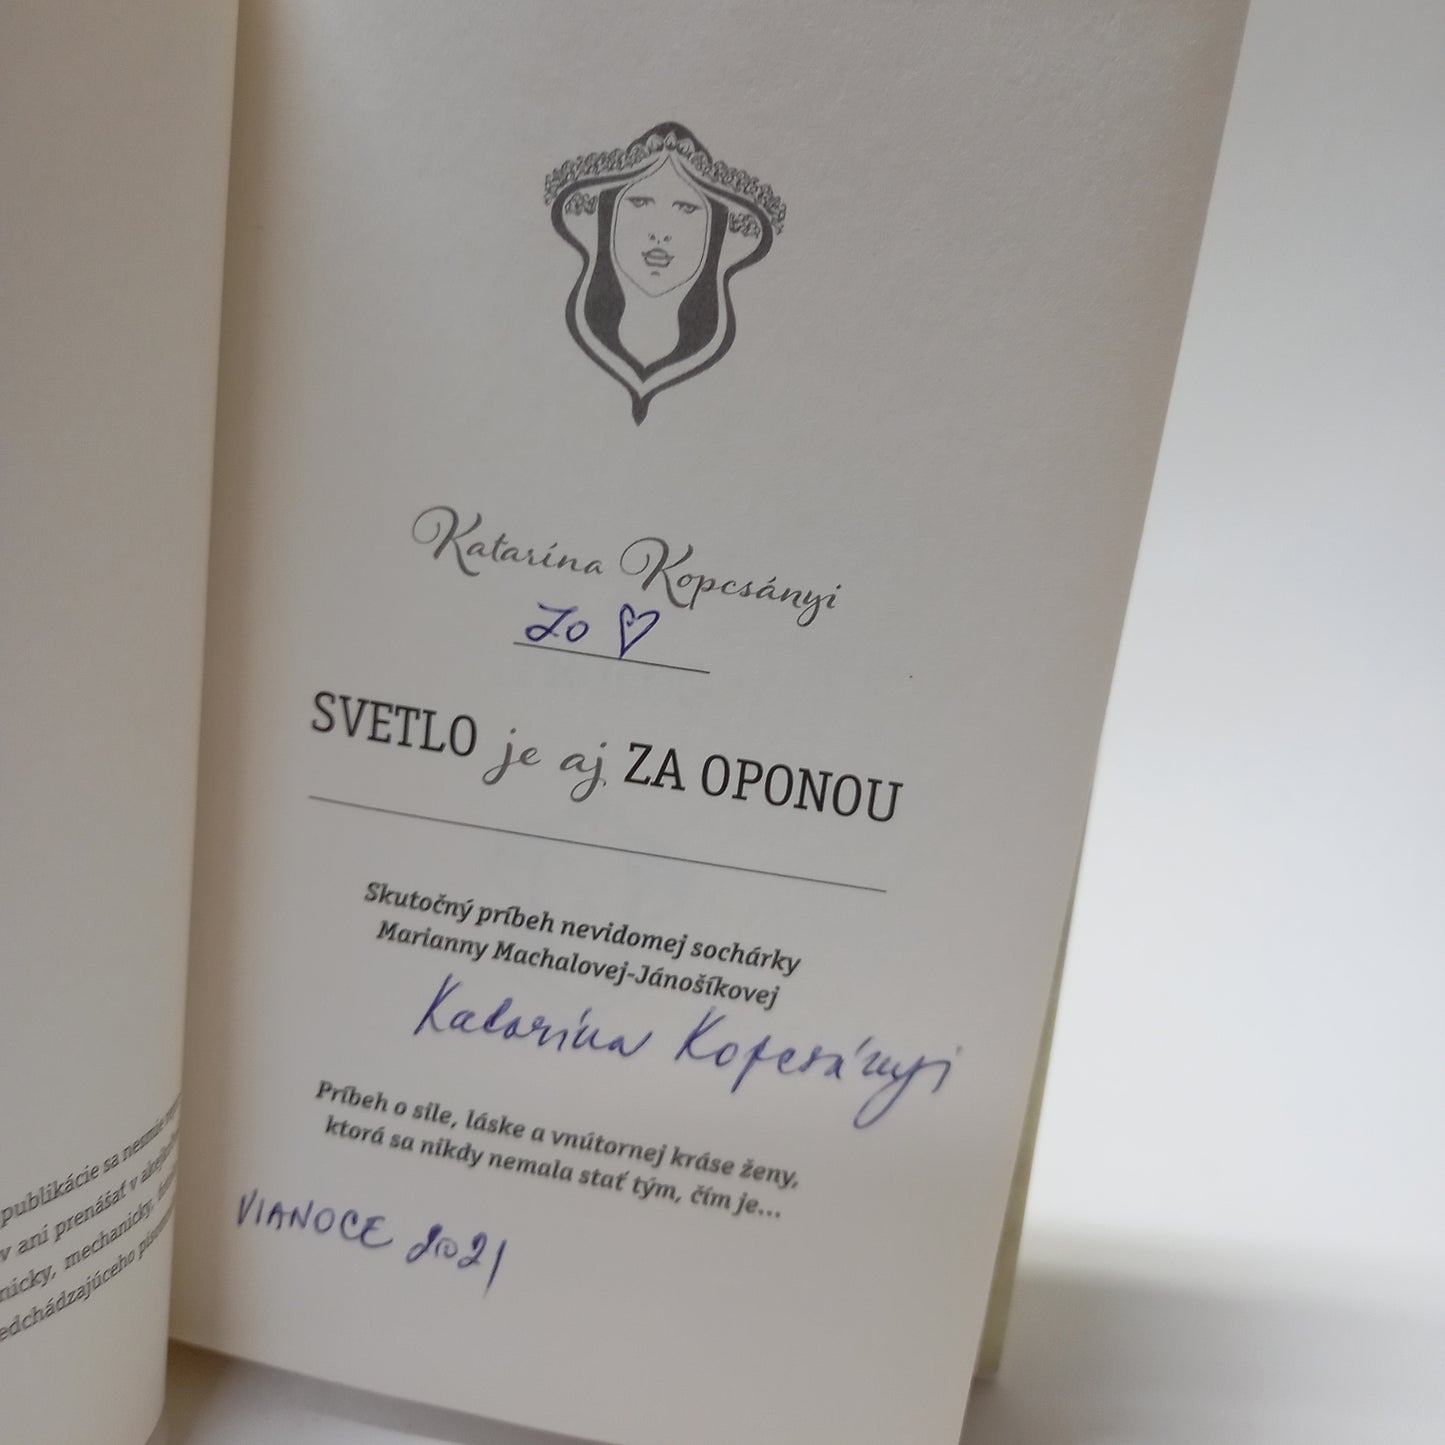 publikácie sa nesmie
v ani prenášať v
nicky, mechanicky,
edchádzajúceho
Katarína Kopcsányi
Zo ♡
SVETLO je aj ZA OPONOU
Skutočný príbeh nevidomej sochárky
Marianny Machalovej-Jánošíkovej
Katarína Kopcsányi
Príbeh o sile, láske a vnútornej kráse ženy,
ktorá sa nikdy nemala stať tým, čím je...
VIANOCE 2021